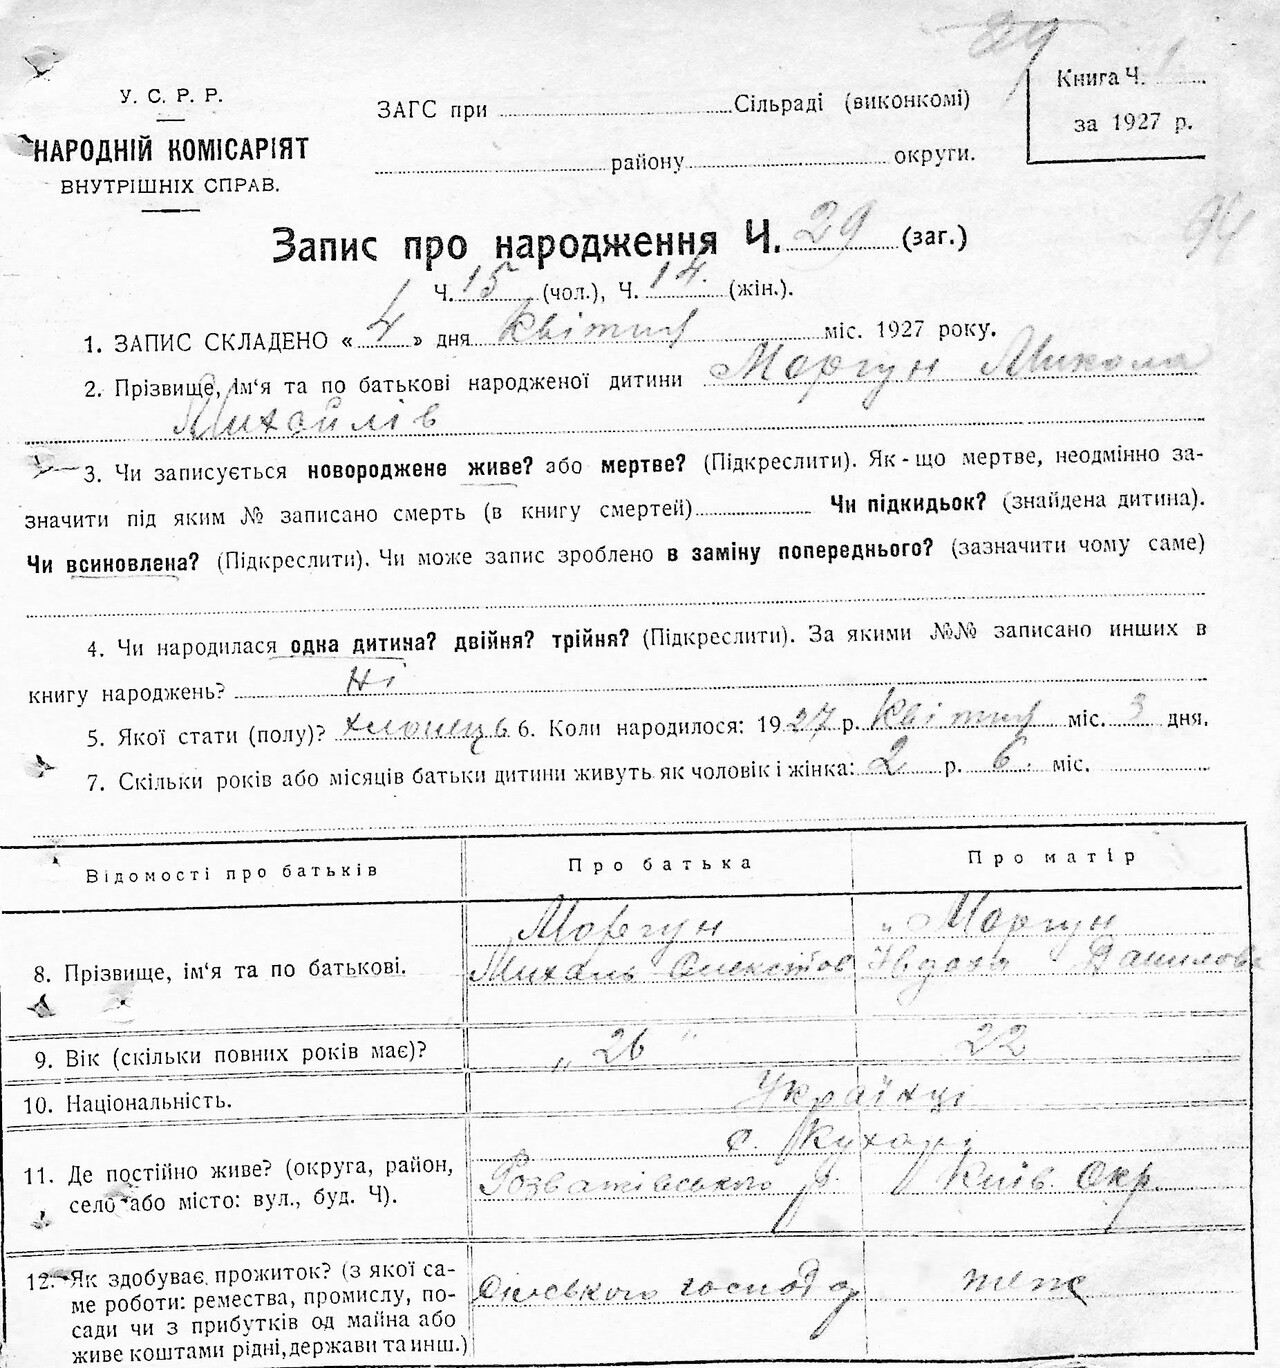 89
У. С. Р. Р.
НАРОДНІЙ КОМІСАРІЯТ
ВНУТРІШНІХ СПРАВ.
ЗАГС при Сільраді (виконкомі)
району округи.
Книга Ч. 1.
за 1927 р.
94
Запис про народження Ч. 29 (заг.)
Ч. 15 (чол.), Ч. 14. (жін.).
1. ЗАПИС СКЛАДЕНО « 4 » дня квітня міс. 1927 року.
2. Прізвище, ім'я та по батькові народженої дитини Моргун Микола
Михайлів
3. Чи записується новороджене живе? або мертве? (Підкреслити). Як-що мертве, неодмінно за-
значити під яким № записано смерть (в книгу смертей) Чи підкидьок? (знайдена дитина).
Чи всиновлена? (Підкреслити). Чи може запис зроблено в заміну попереднього? (зазначити чому саме)
4. Чи народилася одна дитина? двійня? трійня? (Підкреслити). За якими №№ записано инших в
книгу народжень? Ні
5. Якої стати (полу)? хлопець 6. Коли народилося: 1927 р. квітня міс. 3 дня.
7. Скільки років або місяців батьки дитини живуть як чоловік і жінка: 2 р. 6. міс.
Відомості про батьків Про батька Про матір
8. Прізвище, ім'я та по батькові.
Моргун „ Моргун
Михаль Явдоха Данилова
9. Вік (скільки повних років має)? „ 26 " 22
10. Національність. Українці
11. Де постійно живе? (округа, район,
село або місто: вул., буд. Ч).
с. Кухарі
Розважівського р. Київ. Окр.
12. Як здобуває прожиток? (з якої са-
ме роботи: ремества, промислу, по-
сади чи з прибутків од майна або
живе коштами рідні, держави та инш.)
сільського господ теж